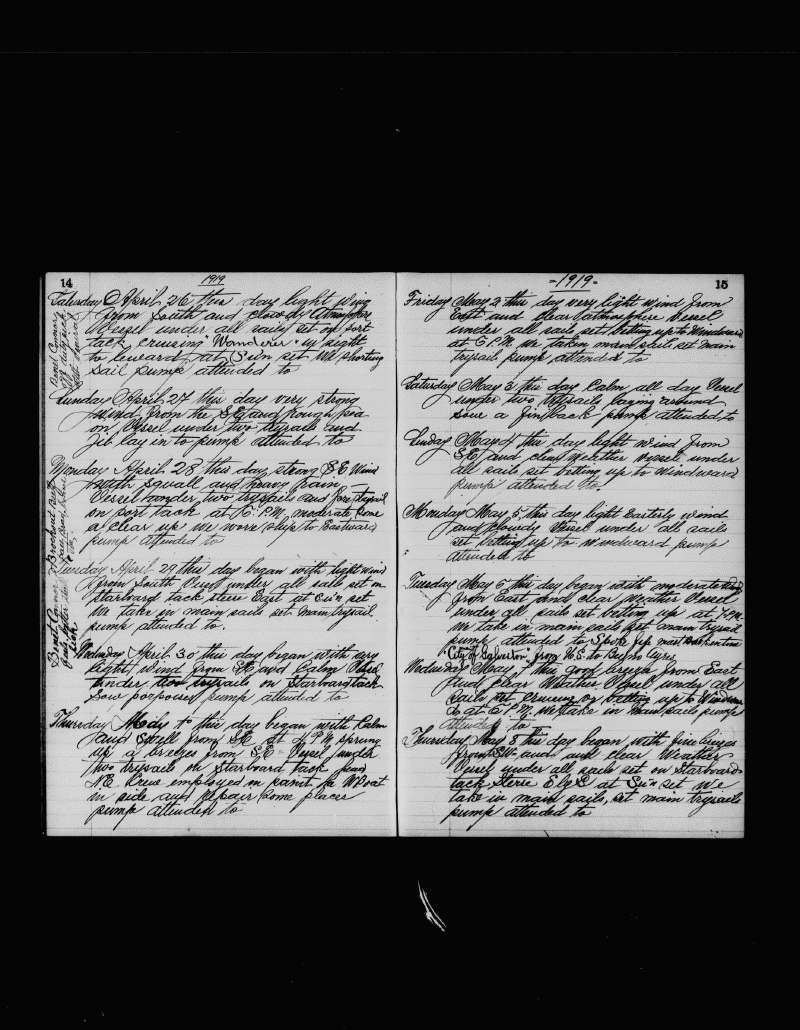 14
1919
Saturday April 26 this day light wing
from South and cloudy atmosphere
Vessel under all sails set on port
tack cruising "Wanderer" in sight
to leward, at Sun set We shorting
sail pump attended to
Sunday April 27 this day very strong
wind from the SE and rough sea
on Vessel under two trysails and
Jib lay in to pump attended to
Monday April 28 this day strong SE Wind
with squall and heavy rain,
Vessel under two trysails and fore staysail
on port tack at P.M. moderate some
a clear up we worn ship to Eastward
pump attended to
Tuesday April 29 this day began with light wind
from South Vessel under all sails set on
Starboard tack steer East at Sun set
We take in main sails set main trysail
pump attended to.
Wednesday April 30 this day began with very
light wind from SE and Calm Vessel
under two trysails on Starboard tack
Saw porpoises pump attended to
Thursday May 1 this day began with Calm
and Swell from SE at 4 P.M. sprung
up a breeze from S.E. Vessel under
two trysails on Starboard tack head
N.E. Crew employed in the Boat
in side and repair some places
pump attended to
15
-1919-
Friday May 2 this day very light wind from
East and clear atmosphere Vessel
under all sails set beting up to Windward
at 6 P.M. We taken main sail set main
trysail pump attended to
Saturday May 3 this day Calm all day Vessel
under two trysails laying around
saw a finback pump attended to
Sunday May 4 this day light wind from
SE and clear Weather Vessel under
all sails set beting up to windward
pump attended to.
Monday May 5 this day light Easterly wind
and cloudy Vessel under all sails
set betting up to windward pump
attended to
Tuesday May 6 this day began with moderate wind
from East and clear Weather Vessel
under all sails set beting up at 7 P.M.
We take in main sails set main trysail
pump attended to Spoke up mast Barkentine
"City of Galveston" from U.S. to Buenos Ayres
Wednesday May 7 this day breeze from East
and clear Weather Vessel under all
sails set cruising or betting up to Windward
at 6 P.M. We take in main sails pump
attended to
Thursday May 8 this day began with fine breeze
from and clear Weather
Vessel under all sails set on Starboard
tack. Steere at Sun set We
take in main sails, set main trysails
pump attended to